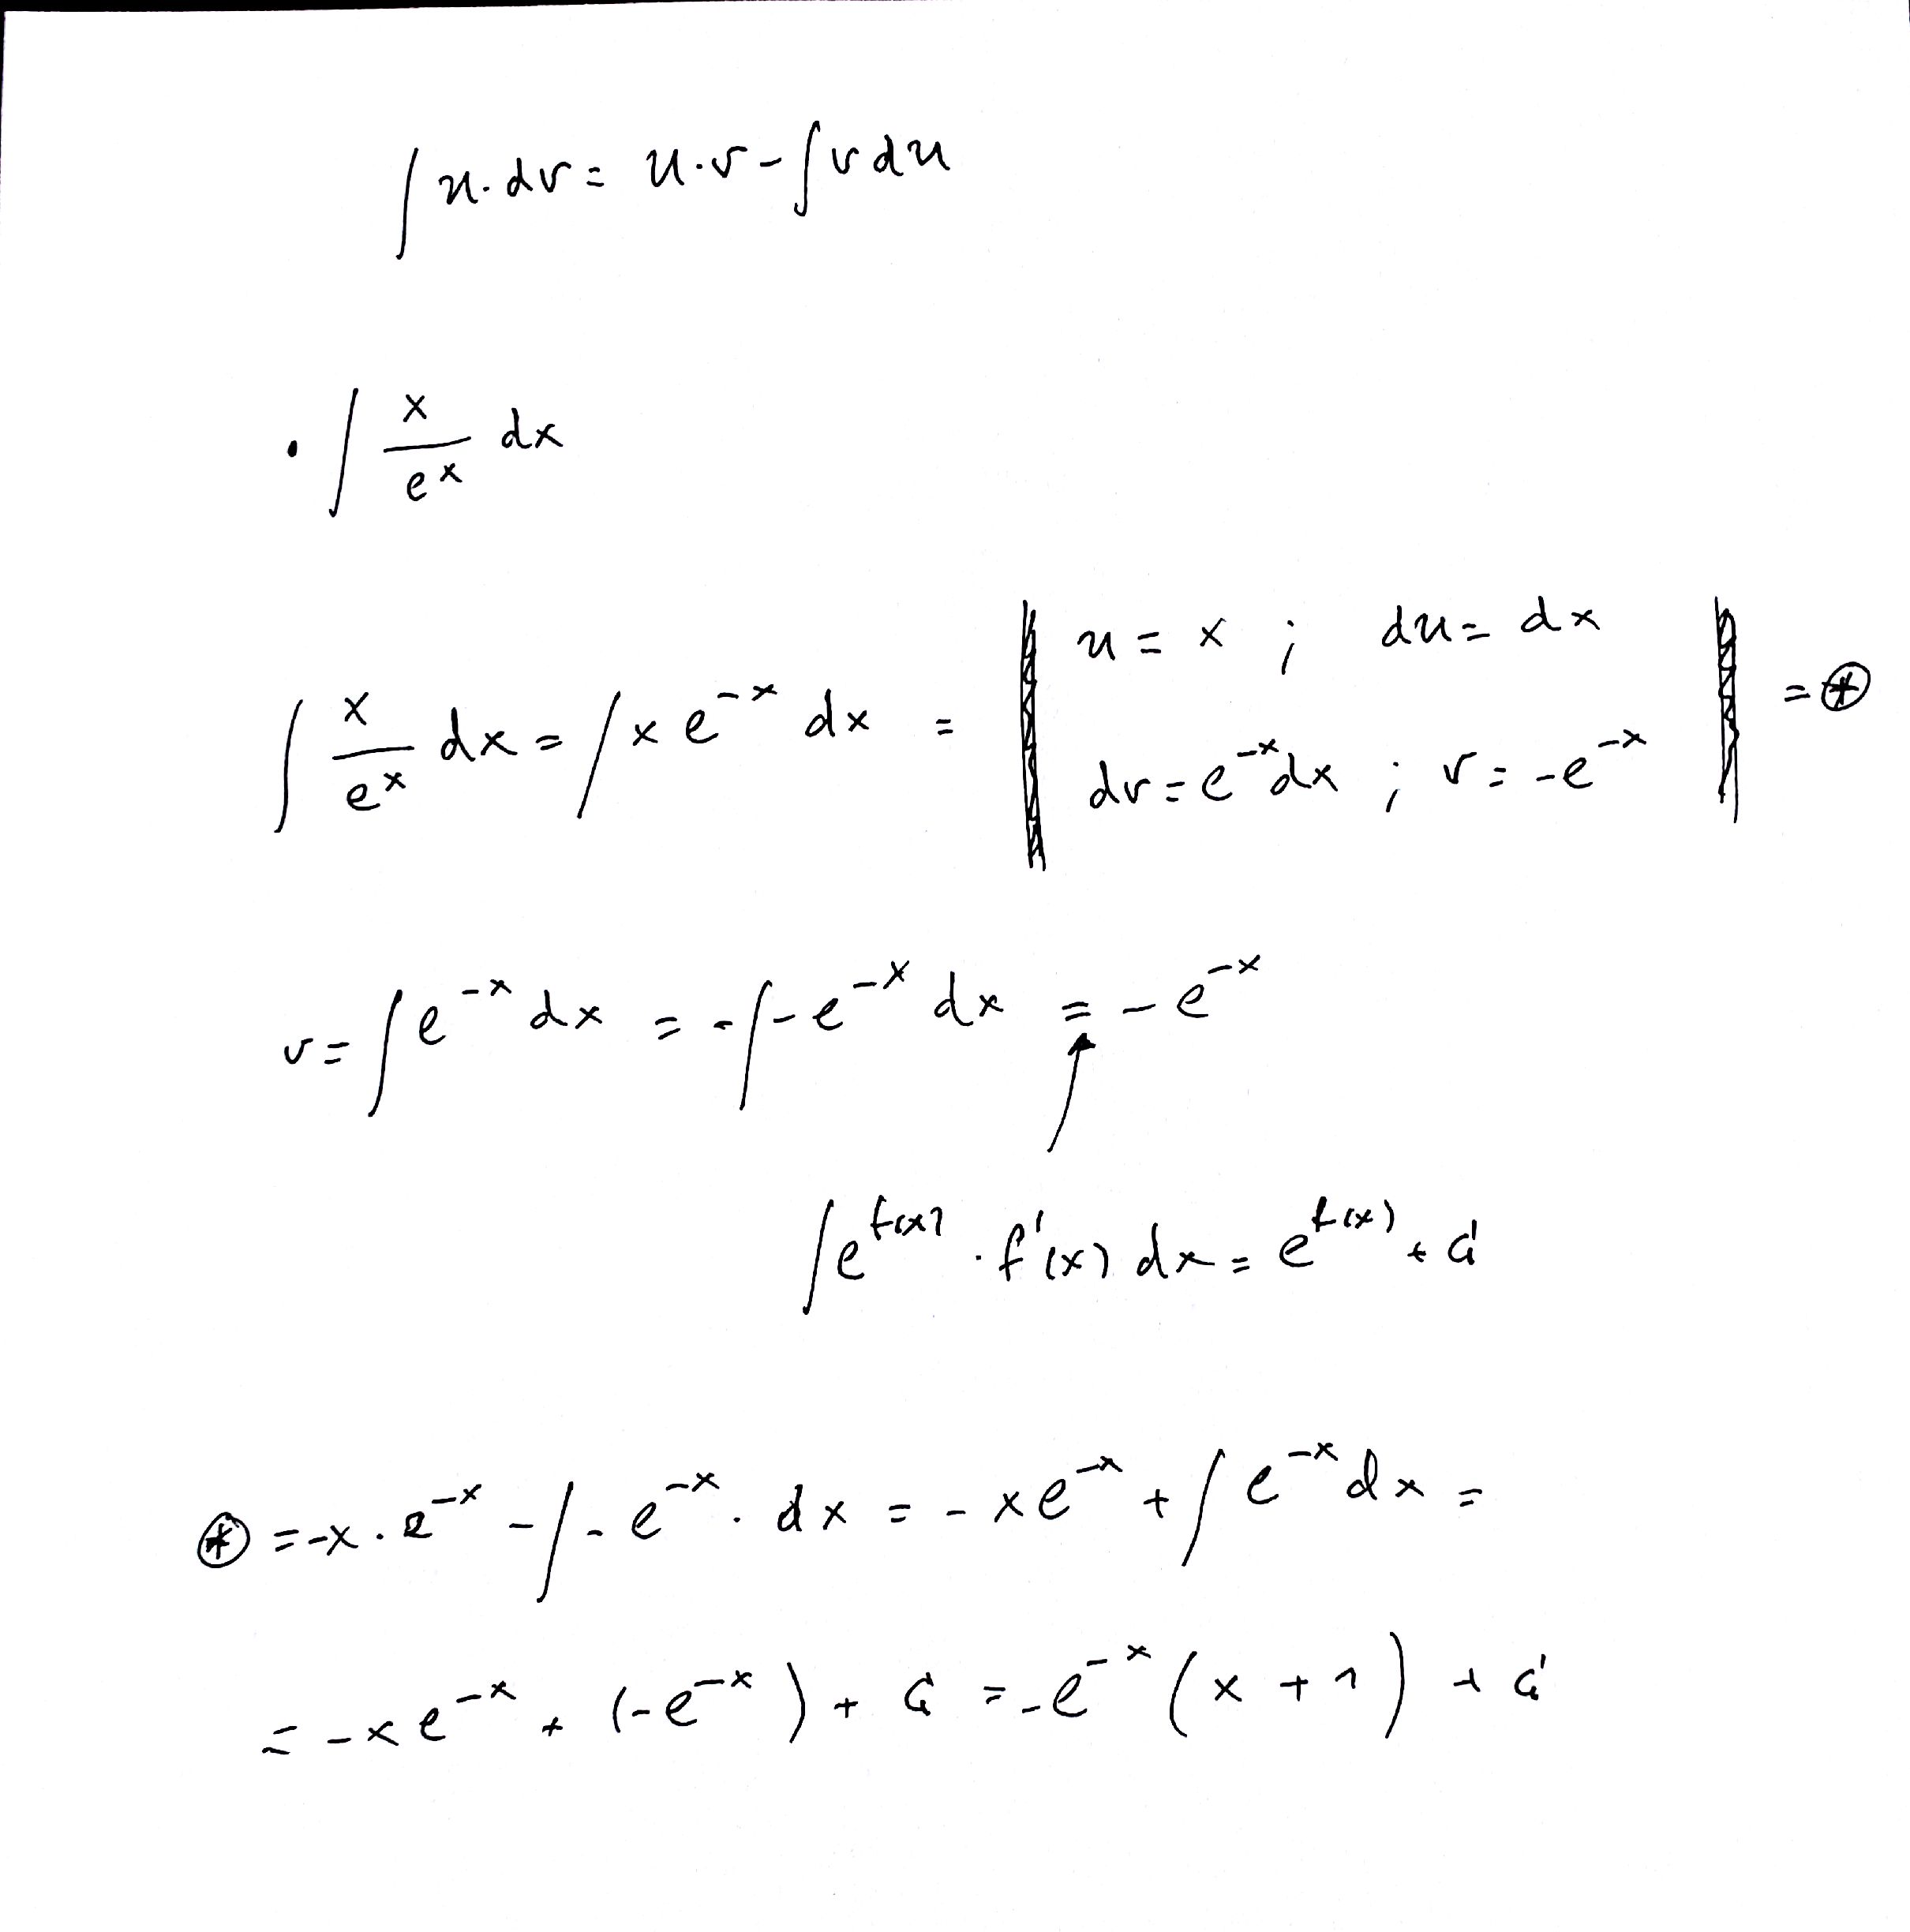 ∫ u·dv = u·v - ∫ v du
• ∫ x/e^x dx
∫ x/e^x dx = ∫ x e^{-x} dx = | u = x ; du = dx
dv = e^{-x} dx ; v = -e^{-x} | = ⊛
v = ∫ e^{-x} dx = -∫ -e^{-x} dx = -e^{-x}
∫ e^{f(x)} · f'(x) dx = e^{f(x)} + C
⊛ = -x · e^{-x} - ∫ -e^{-x} · dx = -x e^{-x} + ∫ e^{-x} dx =
= -x e^{-x} + (-e^{-x}) + C = -e^{-x} (x + 1) + C